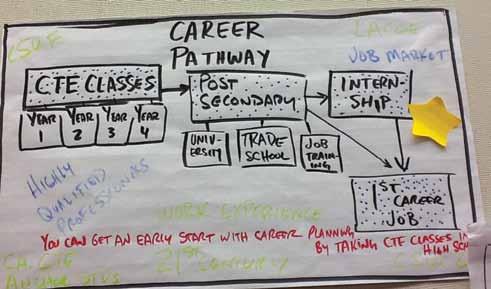 CAREER
PATHWAY
CSUF
JOB MARKET
CTE CLASSES
POST
SECONDARY
INTERN-
SHIP
YEAR
1
YEAR
2
YEAR
3
YEAR
4
UNI-
VERSITY
TRADE
SCHOOL
JOB
TRAIN-
ING
HIGHLY
QUALIFIED
PROFESSIONALS
1ST CAREER
JOB
WORK EXPERIENCE
YOU CAN GET AN EARLY START WITH CAREER PLANNING
BY TAKING CTE CLASSES IN
HIGH
21ST CENTURY